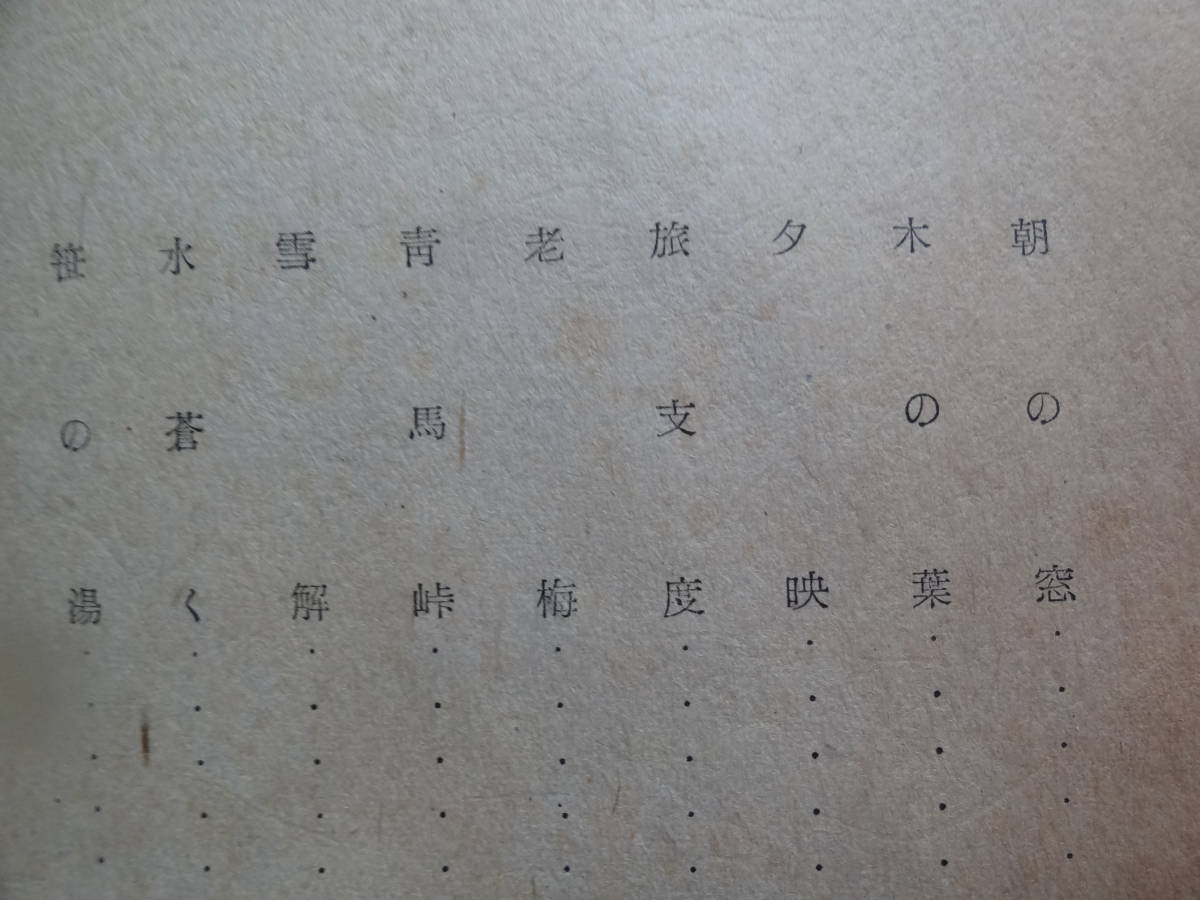 朝の窓・・・・・
木の葉・・・・・
夕映・・・・・
旅支度・・・・・
老梅・・・・・
靑馬峠・・・・・
雪解・・・・・
水蒼く・・・・・
笹の湯・・・・・